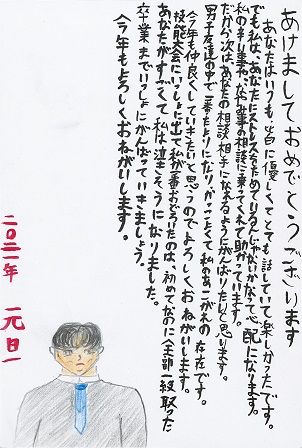 あけましておめでとうございます
あなたはいつも面白に優しくてとても話していて楽しかったです。
でも私は、あなたにストレスをためているんじゃないかなって心配になります。
私のキリ事や、なやみ事の相談に乗ってくれて助かっています。
だから次は、あなたの相談相手になれるようにがんばりたいと思います。
男子友達の中で一番たよりになり、かっこよくて私のあこがれの存在です。
今年も仲良くしていきたいと思うのでよろしくおねがいします。
技能大会にいっしょに出て私が一番おどろいたのは、初めてなのに全部一級取った
あなたがすごくて私は泣きそうになりました。
卒業までいっしょにがんばっていきましょう。
今年もよろしくおねがいします。
二〇二一年 元日